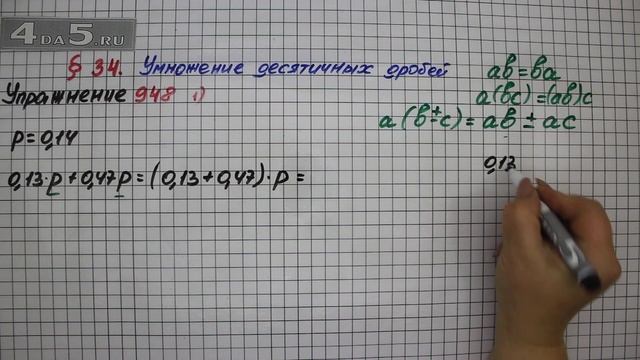 4DA5.RU
§ 34. Умножение десятичных дробей
ab=ba
Упражнение 948 1)
a(bc)=(ab)c
a(b±c)=ab±ac
p=0,14
0,13·p+0,47p=(0,13+0,47)·p=
0,13